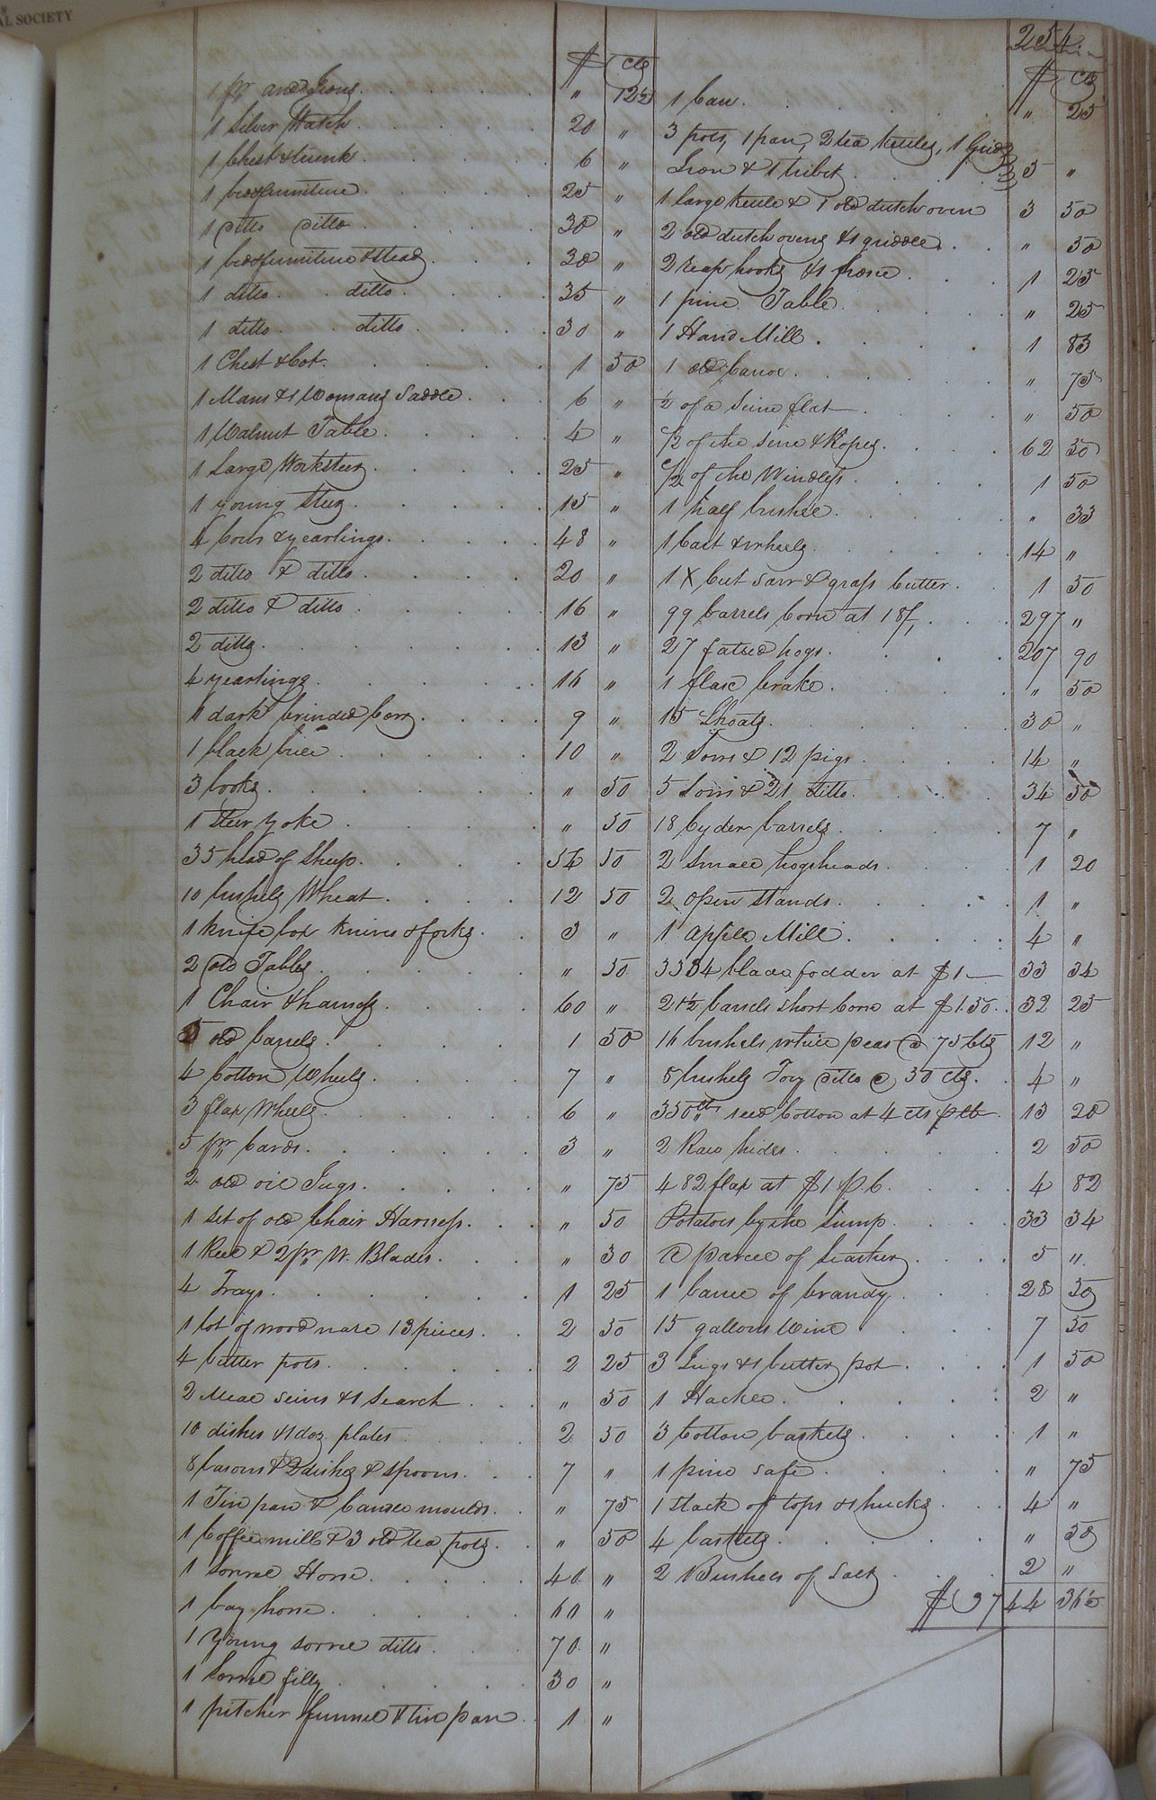 AL SOCIETY
254
$ cts
1 pr andIrons " 12½
1 Silver Watch 20 "
1 Chest & trunk 6 "
1 bed & furniture 25 "
1 ditto ditto 30 "
1 bed & furniture & Stead 30 "
1 ditto ditto 35 "
1 ditto ditto 30 "
1 Chest & Cot 1 50
1 Mans & 1 Womans Saddle 6 "
1 Walnut Table 4 "
1 Large Work steer 25 "
1 young Steer 15 "
4 Cows & yearlings 48 "
2 ditto & ditto 20 "
2 ditto & ditto 16 "
2 ditto 13 "
4 yearlings 16 "
1 dark brinded Cow 9 "
1 black 10 "
3 books " 50
1 steer yoke " 50
35 head of Sheep 54 50
10 bushels Wheat 12 50
1 Knife box knives & forks 3 "
2 old Tables " 50
1 Chair & harness 60 "
5 old barrels 1 50
4 Cotton Wheels 7 "
3 flax Wheels 6 "
5 pr Cards 3 "
2 old oil Jugs " 75
1 set of old Chair Harness " 50
1 Reel & 2 pr W. Blades " 30
4 Trays 1 25
1 lot of wood ware 13 pieces 2 50
4 butter pots 2 25
2 Meal seives & 1 Search " 50
10 dishes & 1 doz plates 2 50
8 basons & 2 dishes & spoons 7 "
1 Tin pan & Candle moulds " 75
1 Coffee mill & 3 old tea pots " 50
1 Sorrel Horse 40 "
1 bay horse 60 "
1 Young sorrel ditto 70 "
1 Sorrel filly 30 "
1 pitcher funnel & tin pan 1 "
$ cts
1 Can " 25
3 pots, 1 pan, 2 tea kettles, 1 Grid
Iron & 1 tribet 5 "
1 large kettle & 1 old dutch oven 3 50
2 old dutch ovens & 1 griddle " 50
2 reap hooks & 1 1 25
1 pine Table " 25
1 Hand Mill 1 83
1 old Canoe " 75
½ of a Seine flat " 50
½ of the seine & Ropes 62 50
½ of the Windless 1 50
1 half bushel " 33
1 Cart & wheels 14 "
1 X Cut saw & grass Cutter 1 50
99 barrels Corn at 18/, 297 "
27 fatted hogs 207 90
1 flax brake " 50
15 Shoats 30 "
2 Sows & 12 pigs 14 "
5 Sows & 21 ditto 34 50
18 Cyder barrels 7 "
2 Small hogsheads 1 20
2 open stands 1 "
1 Apple Mill 4 "
3334 blade fodder at $1 33 34
21½ barrels short Corn at $1.50 32 25
16 bushels white peas @ 75 Cts 12 "
8 bushels Tory ditto @ 50 cts 4 "
330 lbs seed Cotton at 4 cts p lb 13 20
2 Raw hides 2 50
482 flax at $1 p C 4 82
Potatoes by the lump 33 34
A parcel of Leather 5 "
1 barrel of brandy 28 50
15 gallons Wine 7 50
3 Jugs & 1 butter pot 1 50
1 Hackle 2 "
3 Cotton baskets 1 "
1 pine safe " 75
1 stack of tops & shucks 4 "
4 baskets " 50
2 Bushels of Salt 2 "
44 36½